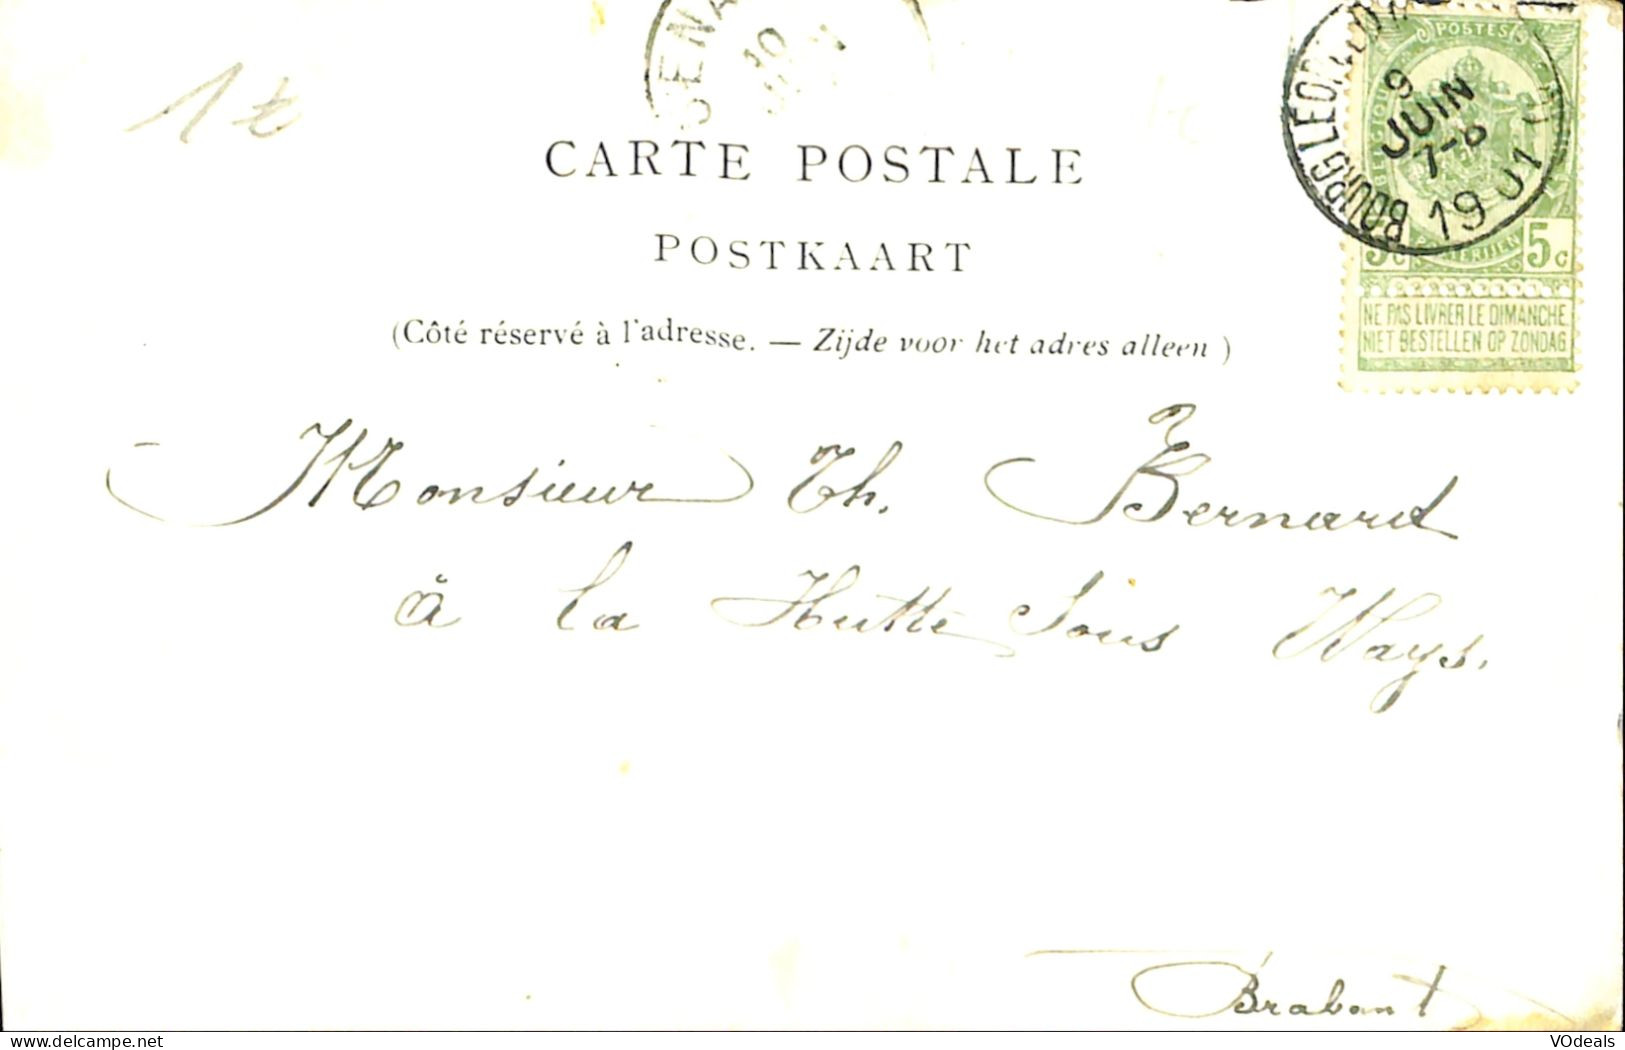 1 €
10
CARTE POSTALE
POSTKAART
(Côté réservé à l'adresse. — Zijde voor het adres alleen )
POSTES
9
JUIN
7-8
1901
5c 5c
NE PAS LIVRER LE DIMANCHE
NIET BESTELLEN OP ZONDAG
Monsieur Th. Bernard
à la Hutte Sous Ways.
Brabant
VOdeals